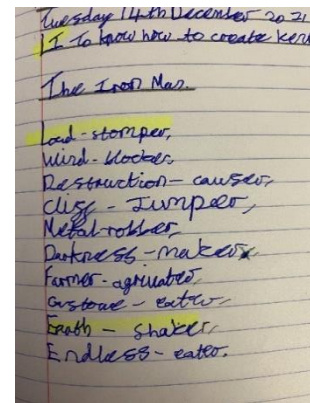 Tuesday 14th December 2021
I To know how to create kenn
The Iron Man.
Loud-stomper,
Wind-blocker,
Destruction-causer,
Cliff-Jumper,
Metal-robber,
Darkness-maker,
Farmer-
eater,
Earth-shaker,
Endless-eater.